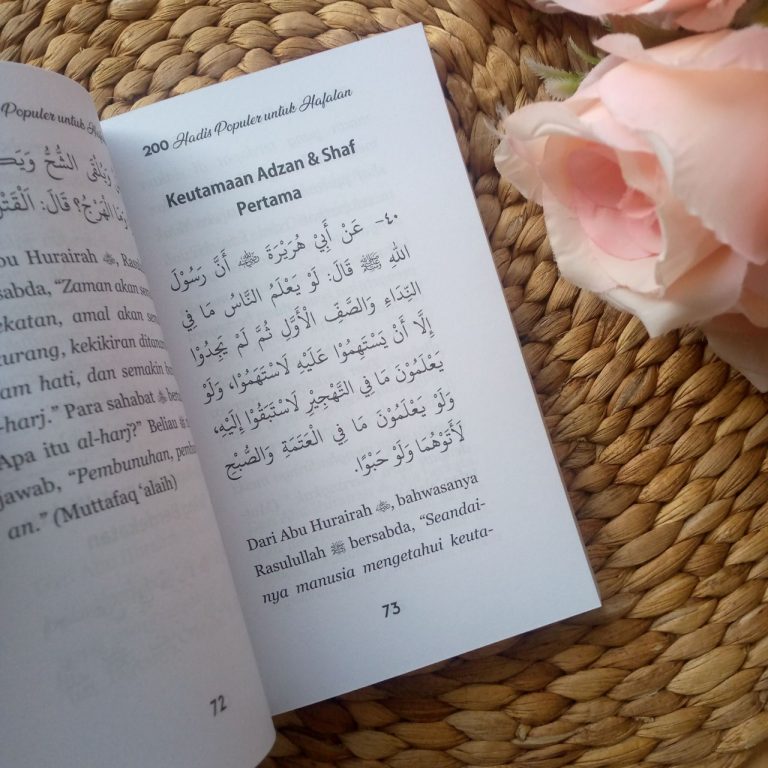 Populer untuk
الشُّحُّ
الْهَرْجُ؟ قَالَ: الْقَتْلُ
Abu Hurairah
bersabda, “Zaman akan
dekatan, amal akan
kurang, kekikiran
dalam hati, dan semakin
al-harj.” Para sahabat
Apa itu al-harj?” Beliau ﷺ
jawab, “Pembunuhan,
an.” (Muttafaq ‘alaih)
72
200 Hadis Populer untuk Hafalan
Keutamaan Adzan & Shaf
Pertama
٤٠- عَنْ أَبِيْ هُرَيْرَةَ ﵁ أَنَّ رَسُوْلَ
اللهِ ﷺ قَالَ: لَوْ يَعْلَمُ النَّاسُ مَا فِي
النِّدَاءِ وَالصَّفِّ الْأَوَّلِ ثُمَّ لَمْ يَجِدُوْا
إِلَّا أَنْ يَسْتَهِمُوْا عَلَيْهِ لَاسْتَهَمُوْا، وَلَوْ
يَعْلَمُوْنَ مَا فِي التَّهْجِيْرِ لَاسْتَبَقُوْا إِلَيْهِ،
وَلَوْ يَعْلَمُوْنَ مَا فِي الْعَتَمَةِ وَالصُّبْحِ
لَأَتَوْهُمَا وَلَوْ حَبْوًا.
Dari Abu Hurairah ﵁, bahwasanya
Rasulullah ﷺ bersabda, “Seandai-
nya manusia mengetahui keuta-
73